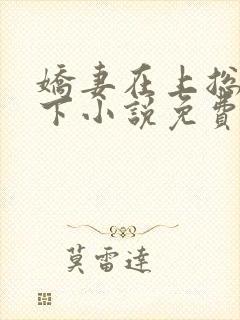 嬌妻在上
下小說免費
莫雷達